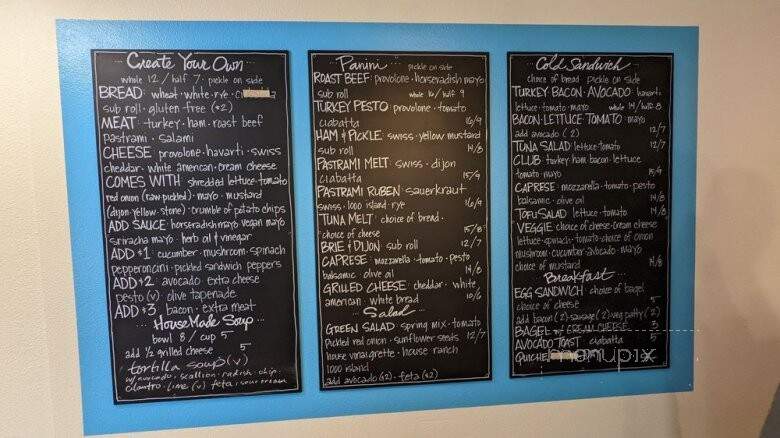 Create Your Own
whole 12 / half 7 · pickle on side
BREAD · wheat · white · rye ·
sub roll · gluten free (+2)
MEAT · turkey · ham · roast beef
pastrami · salami
CHEESE provolone · havarti · swiss
cheddar · white american · cream cheese
COMES WITH shredded lettuce · tomato
red onion (raw · pickled) · mayo · mustard
(dijon · yellow · stone) · crumble of potato chips
ADD SAUCE horseradish mayo vegan mayo
sriracha mayo · herb oil & vinegar
ADD $1 cucumber · mushroom · spinach
pepperoncini · pickled sandwich peppers
ADD $2 avocado · extra cheese
pesto (v) olive tapenade
ADD $3 bacon · extra meat
House Made Soup
bowl 8 / cup 5
add ½ grilled cheese 5
tortilla soup (v)
w/ avocado · scallion · radish · chip ·
cilantro · lime (v) feta · sour cream
Panini pickle on side
ROAST BEEF · provolone · horseradish mayo
sub roll whole 16 / half 9
TURKEY PESTO · provolone · tomato
ciabatta 16/9
HAM & PICKLE · swiss · yellow mustard
sub roll 14/8
PASTRAMI MELT swiss · dijon
ciabatta 15/9
PASTRAMI RUBEN · sauerkraut
swiss · 1000 island · rye 16/9
TUNA MELT · choice of bread ·
choice of cheese 15/8
BRIE & DIJON sub roll 12/7
CAPRESE · mozzarella · tomato · pesto
balsamic · olive oil 14/8
GRILLED CHEESE · cheddar · white
american · white bread 10/6
Salad
GREEN SALAD · spring mix · tomato
pickled red onion · sunflower seeds 12/7
house vinaigrette · house ranch
1000 island
add avocado ($2) · feta ($2)
Cold Sandwich
choice of bread pickle on side
TURKEY · BACON · AVOCADO · havarti
lettuce · tomato · mayo whole 14 / half 8
BACON · LETTUCE · TOMATO · mayo
add avocado (2) 12/7
TUNA SALAD · lettuce · tomato 12/7
CLUB · turkey · ham · bacon · lettuce
tomato · mayo 15/9
CAPRESE · mozzarella · tomato · pesto
balsamic · olive oil 14/8
TOFU SALAD lettuce · tomato 14/8
VEGGIE · choice of cheese · cream cheese
lettuce · spinach · tomato · choice of onion
mushroom · cucumber · avocado · mayo
choice of mustard 14/8
Breakfast
EGG SANDWICH · choice of bagel
choice of cheese 5
add bacon (2) · sausage (2) · veg patty (2)
BAGEL w/ CREAM CHEESE 3
AVOCADO TOAST · ciabatta 5
QUICHE
menupix